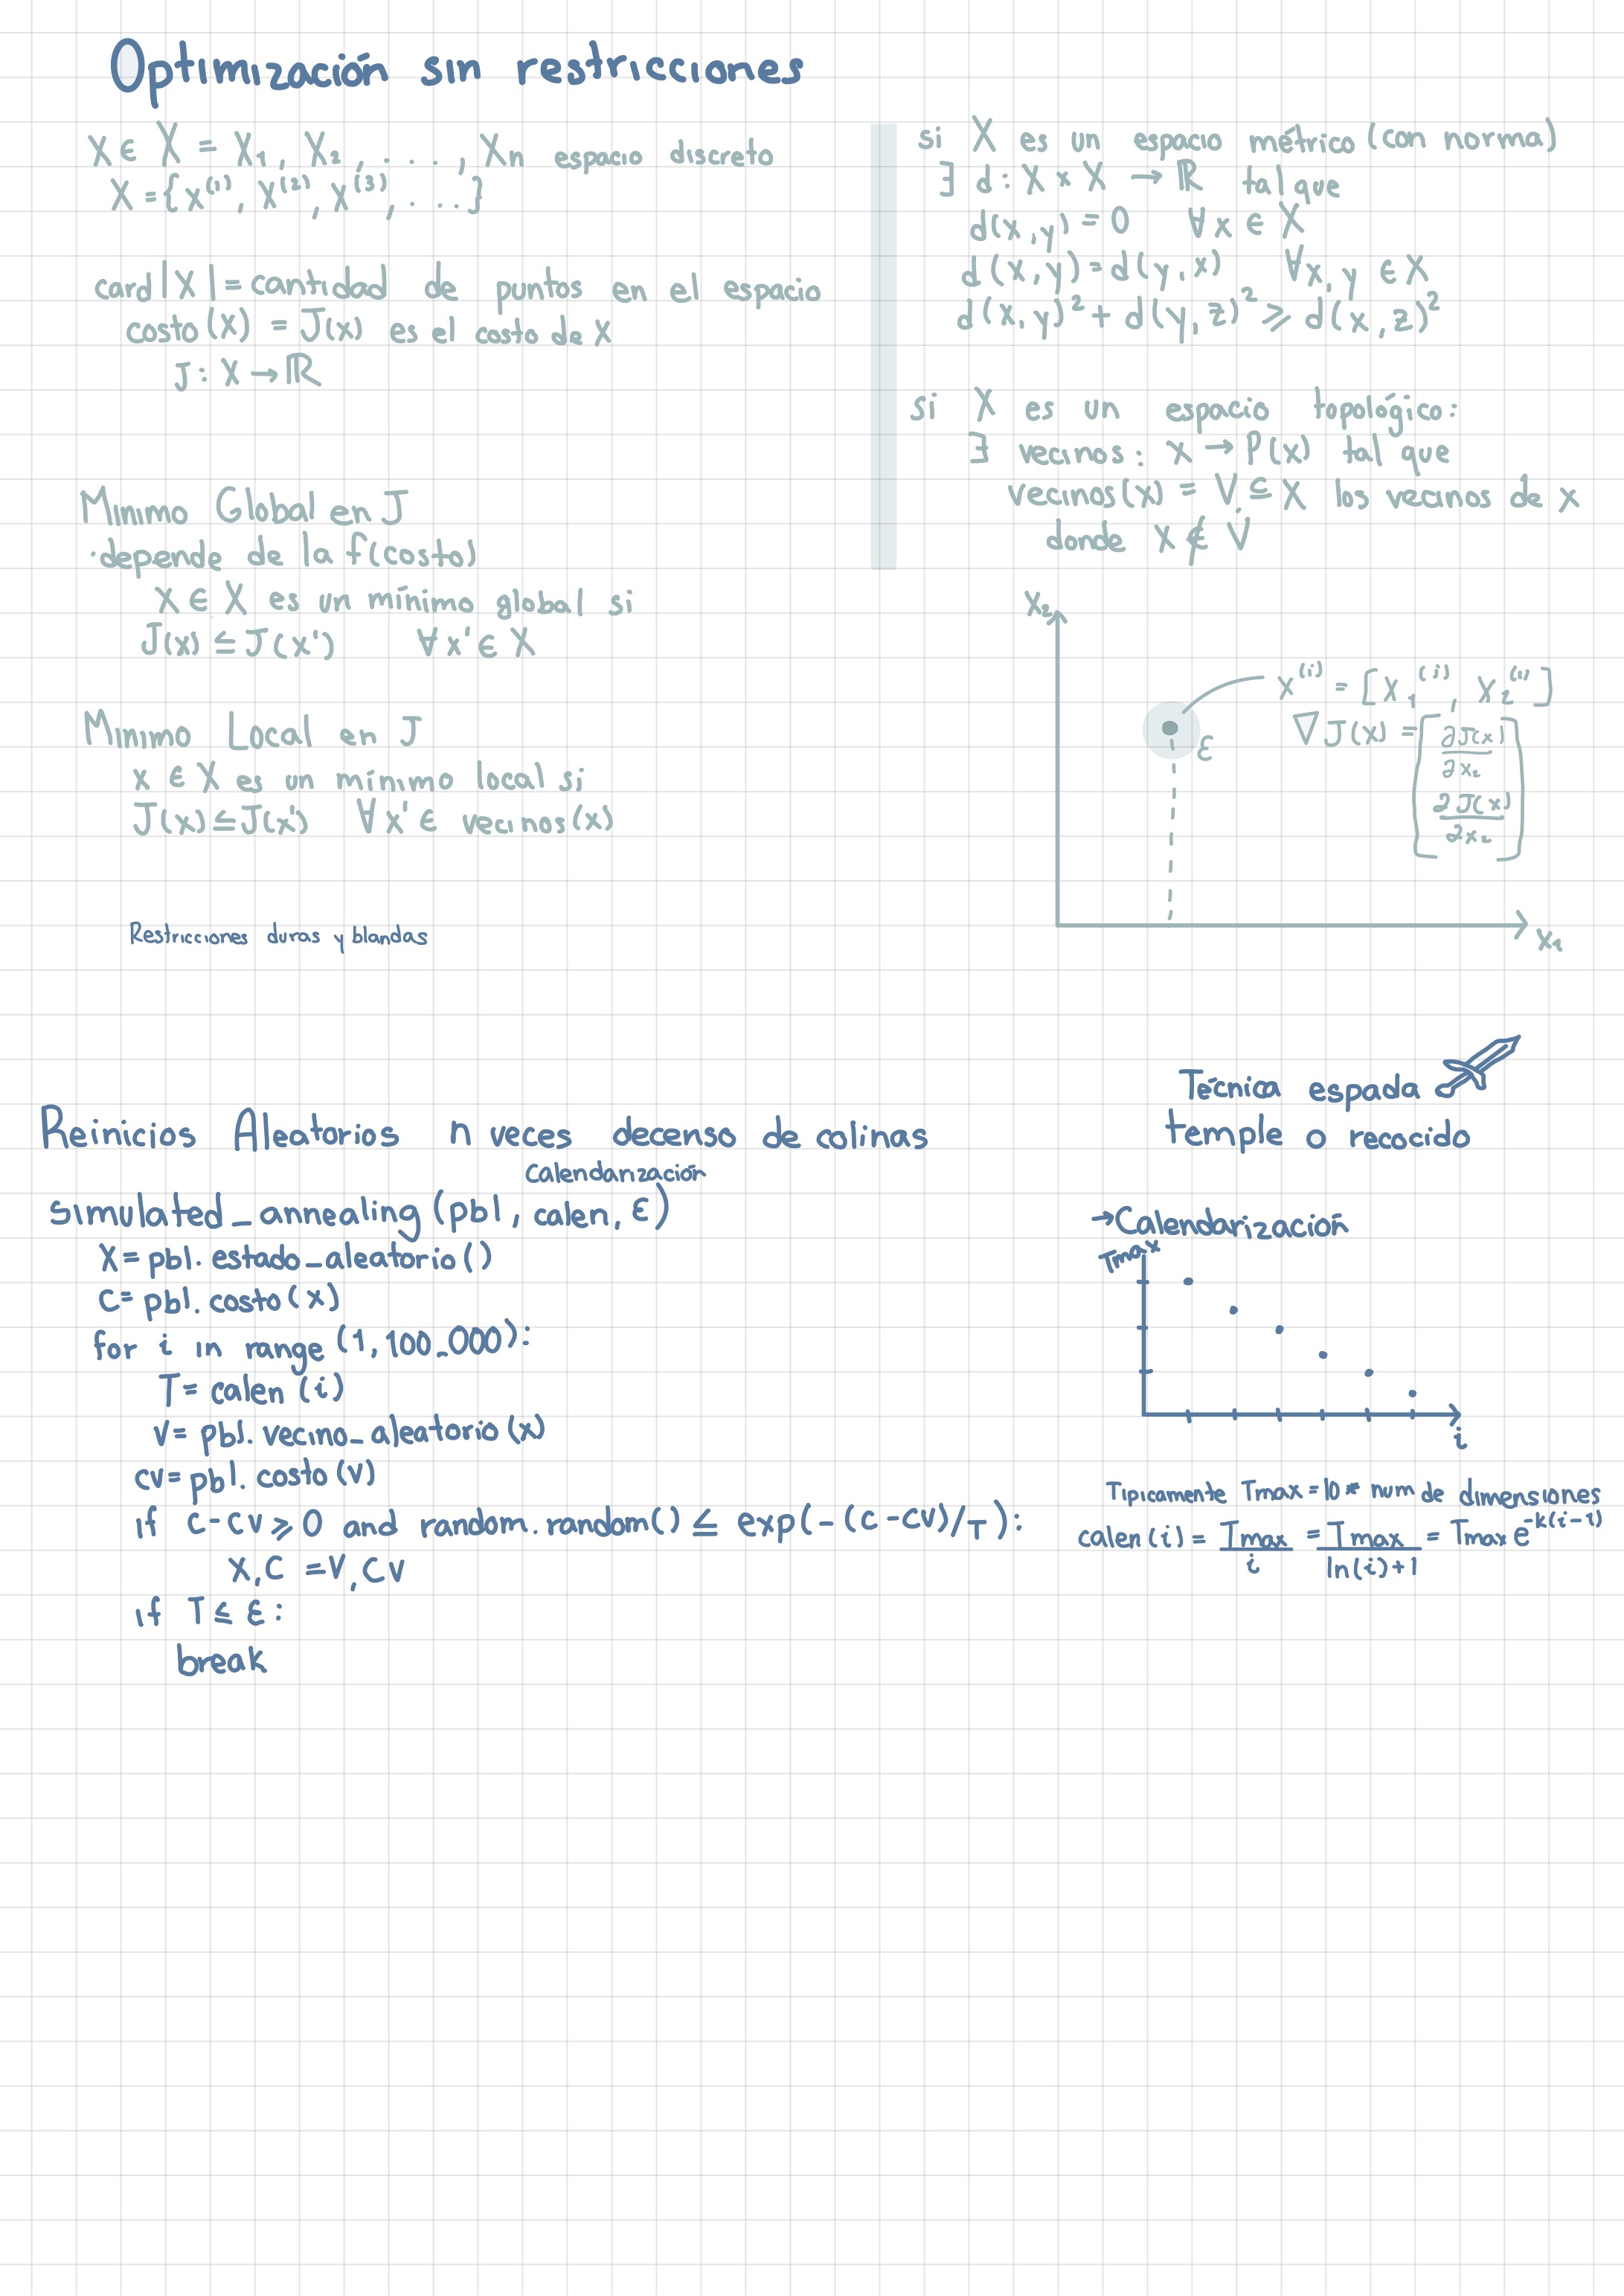 Optimización sin restricciones
X ∈ X = X₁, X₂, . . . , Xn espacio discreto
X = {x⁽¹⁾, X⁽²⁾, x⁽³⁾, . . .}
card |X| = cantidad de puntos en el espacio
costo (X) = J(x) es el costo de X
J : X → ℝ
Minimo Global en J
·depende de la f(costo)
X ∈ X es un mínimo global si
J(x) ≤ J(x') ∀ x' ∈ X
Minimo Local en J
x ∈ X es un mínimo local si
J(x) ≤ J(x') ∀ x' ∈ vecinos(x)
Restricciones duras y blandas
si X es un espacio métrico (con norma)
∃ d : X x X → ℝ tal que
d(x,y) = 0 ∀x ∈ X
d(x,y) = d(y,x) ∀x,y ∈ X
d(x,y)² + d(y,z)² ≥ d(x,z)²
si X es un espacio topológico:
∃ vecinos: x → P(x) tal que
vecinos(x) = V ⊆ X los vecinos de x
donde X ∉ V
X₂
x⁽ⁱ⁾ = [X₁⁽ⁱ⁾, X₂⁽ⁱ⁾]
ε
∇J(x) = [∂J(x)/∂x₂
∂J(x)/∂x₂]
X₁
Técnica espada
temple o recocido
Reinicios Aleatorios n veces decenso de colinas
Calendarización
simulated_annealing (pbl, calen, ε)
X = pbl. estado_aleatorio()
C = pbl. costo(x)
for i in range (1,100_000):
T = calen (i)
V = pbl. vecino_aleatorio(x)
cv = pbl. costo(v)
if c-cv ≥ 0 and random.random() ≤ exp(-(c-cv)/T):
X,C = V,CV
if T ≤ ε:
break
→Calendarización
Tmax
i
Tipicamente Tmax = 10 * num de dimensiones
calen(i) = Tmax/i = Tmax/ln(i)+1 = Tmax e^-k(i-1)